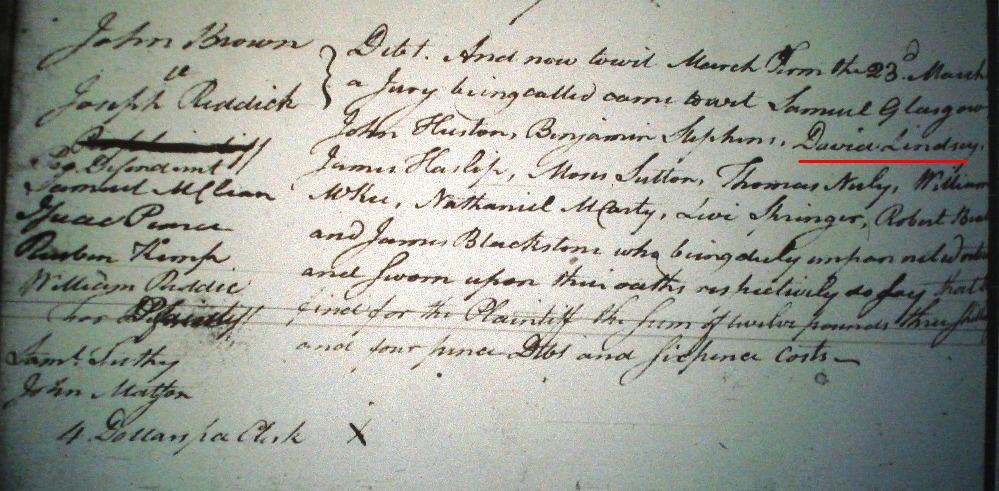 John Brown
vs
Joseph Riddick
Defendent
Samuel McClean
Isaac Pearce
Reuben Kemp
William Riddic
for Plaintiff
Saml.
John
4 Dollars pr Clerk X
Debt. And now towit March Term the 23d March
a Jury being called came towit Samuel Glasgow
John Huston, Benjamin Stephens, David Lindsey,
James Haslip, Moses Sutton, Thomas Neely, William
McKee, Nathaniel McCarty, Levi Springer, Robert
and James Blackstone who being duly
and Sworn upon their oaths respectively do say that
find for the Plaintiff the sum of twelve pounds three
and four pence Debt and sixpence Costs